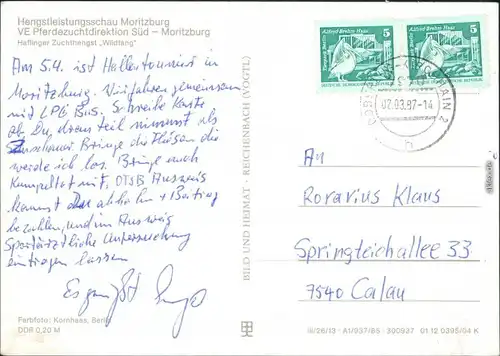 Hengstleistungsschau Moritzburg
VE Pferdezuchtdirektion Süd – Moritzburg
Haflinger Zuchthengst „Wildfang"
Am 5.4. ist in
Moritzburg. Wir fahren gemeinsam
mit LPG Bus. Schreibe Karte
ob Du daran teil nimmst als
Bringe die
werde ich los. Bringe auch
mit, DTSB Ausweis
kannst Du + Beitrag
bezahlen, und im Ausweis
Sportärztliche Untersuchung
eintragen lassen
Es grüßt
Farbfoto: Kornhaas, Berlin
DDR 0,20 M
BILD UND HEIMAT · REICHENBACH (VOGTL)
Alfred Brehm Haus 5
Alfred Brehm Haus 5
02.03.87-14
An
Rorarius Klaus
Springteichallee 33
7540 Calau
III/26/13 A1/937/85 300937 01 12 0395/04 K